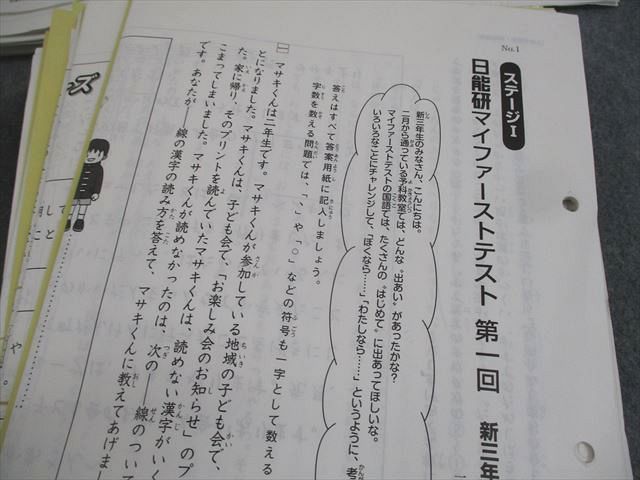 No.1
ステージⅠ
日能研マイファーストテスト 第一回 新三年
新三年生のみなさん、こんにちは。
二月から通っている予科教室では、どんな“出あい”があったかな?
マイファーストテストの国語では、たくさんの“はじめて”に出あってほしいな。
いろいろなことにチャレンジして、「ぼくなら……」「わたしなら……」というように、考
答えはすべて答案用紙に記入しましょう。
字数を数える問題では、「、」や「。」などの符号も一字として数える
一 マサキくんは二年生です。マサキくんが参加している地域の子ども会で、
とになりました。マサキくんは、子ども会で、「お楽しみ会のお知らせ」のプ
た。家に帰り、そのプリントを読んでいたマサキくんは、読めない漢字がいく
こまってしまいました。マサキくんが読めなかったのは、次の――線のついて
です。あなたが――線の漢字の読み方を答えて、マサキくんに教えてあげま
ズ